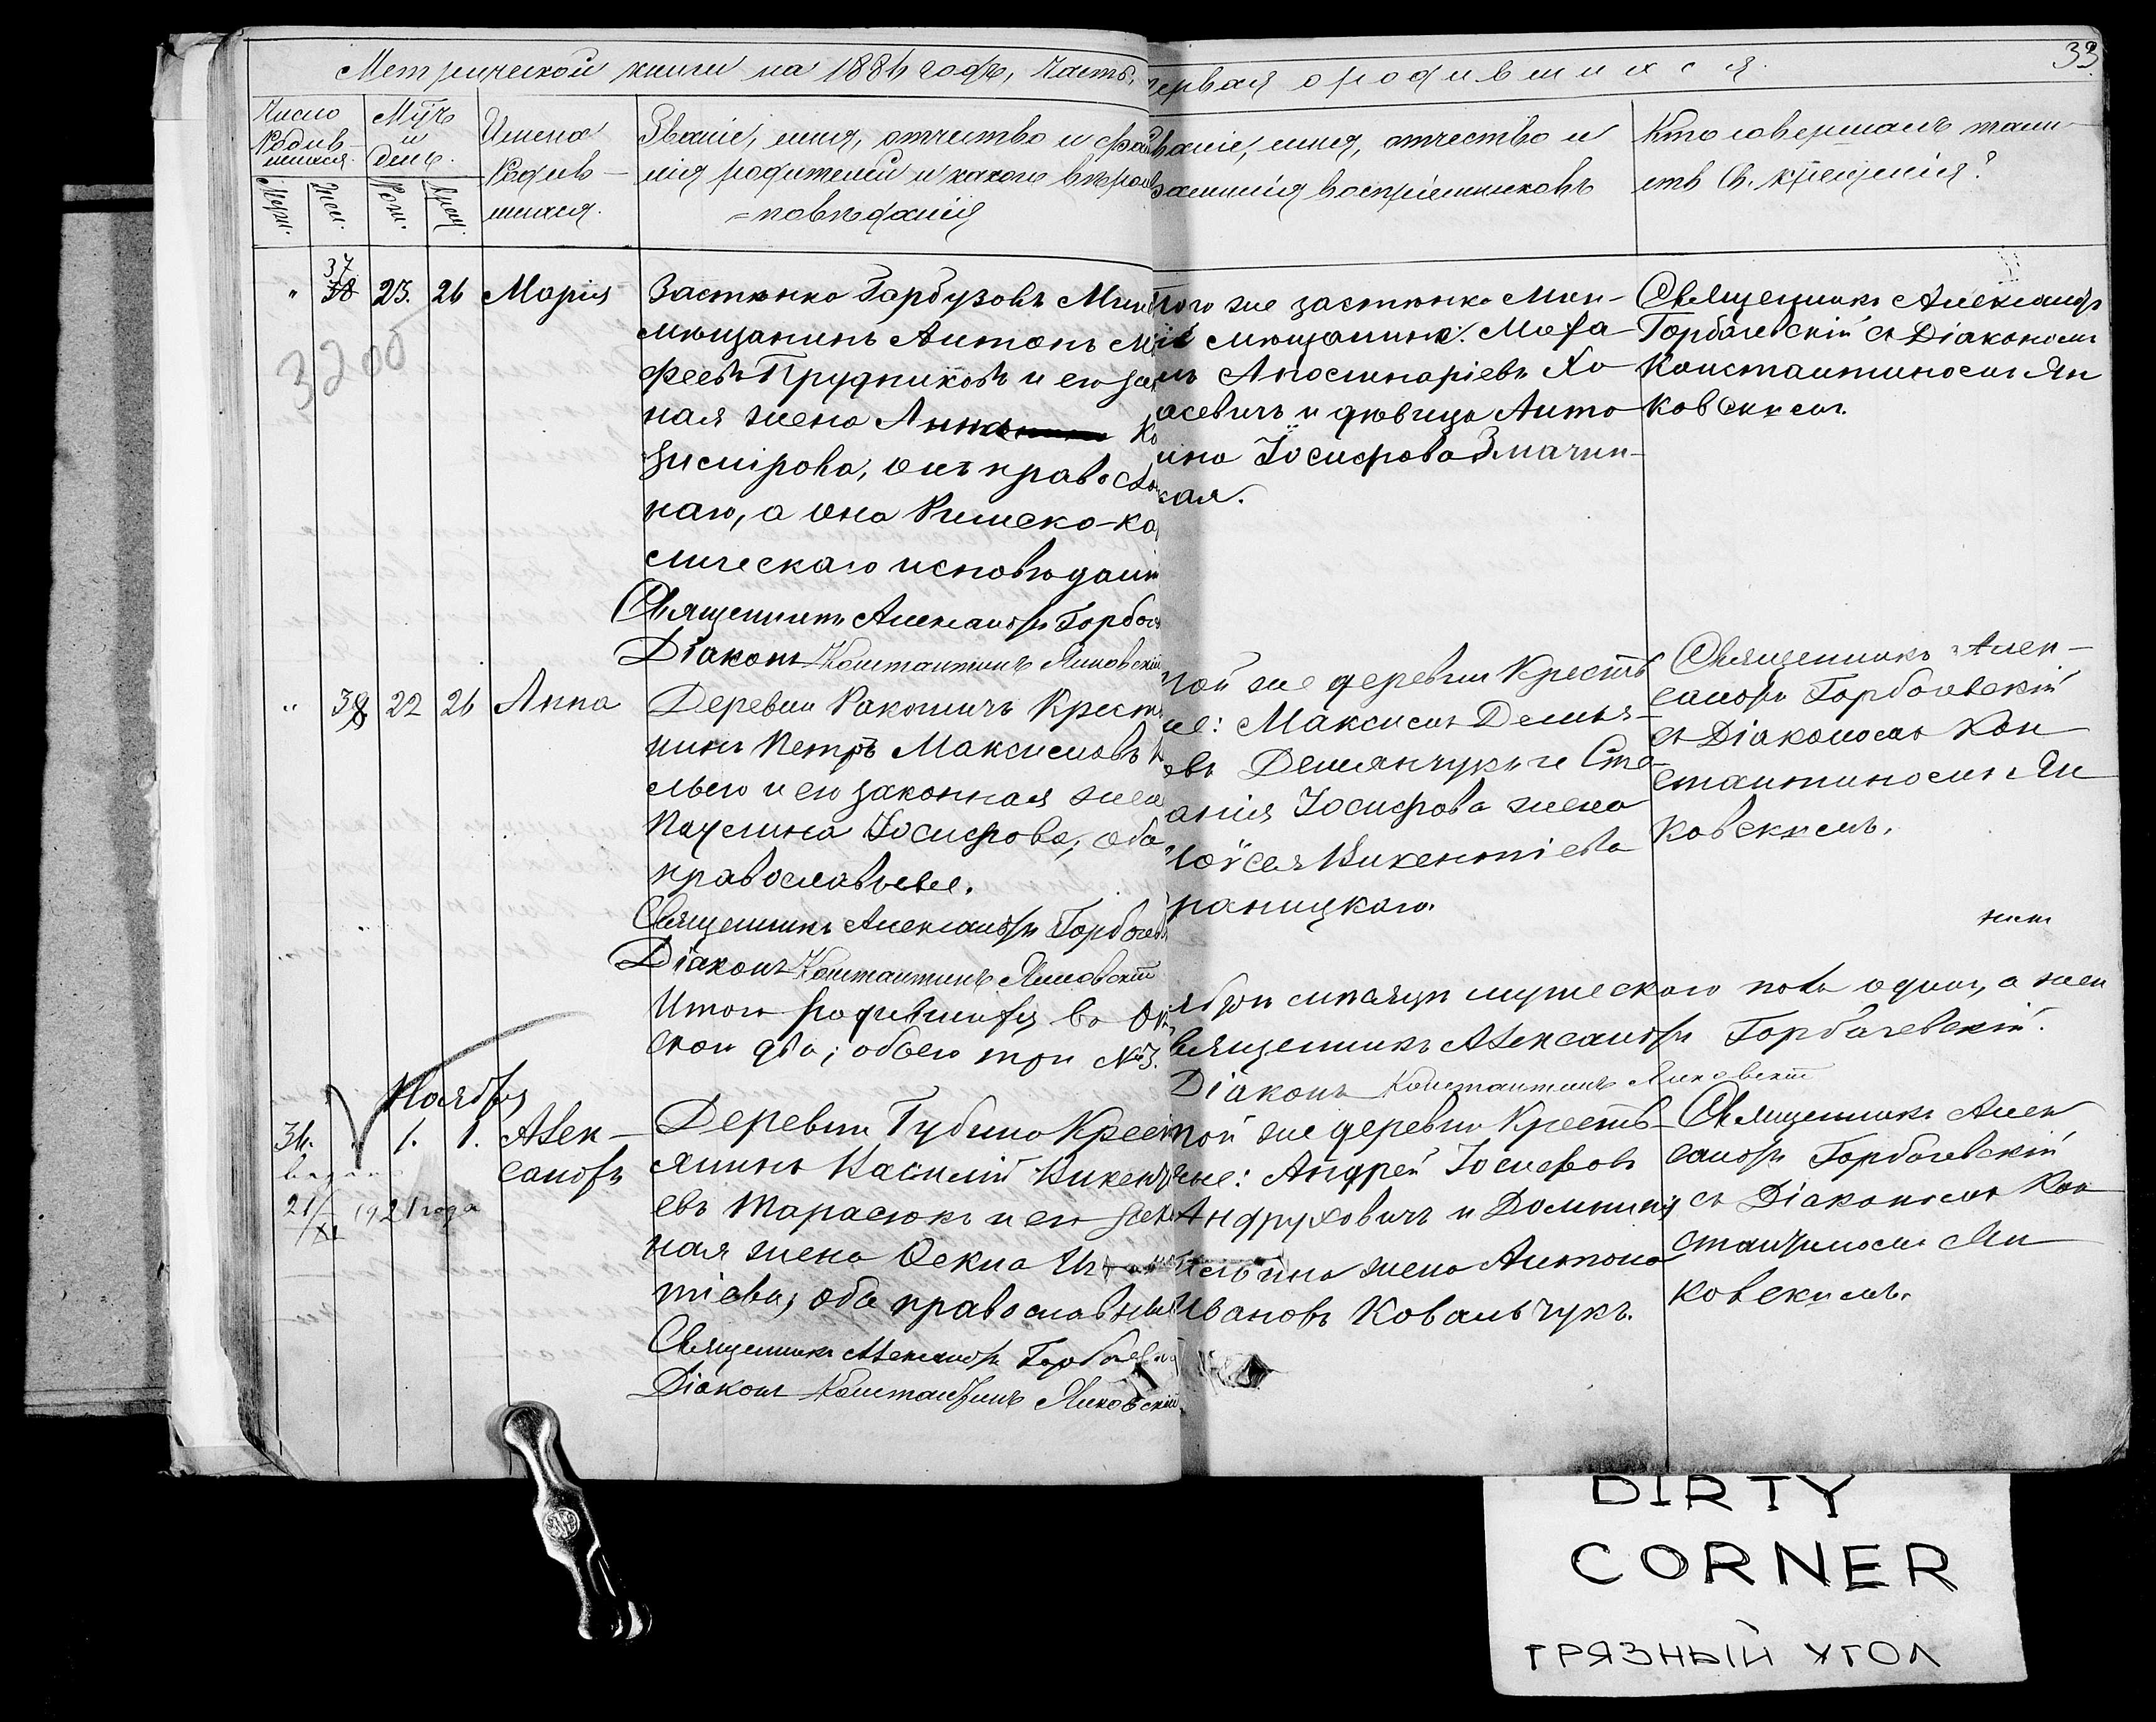 Метрической книги на 1886 годъ, часть
первая о родившихся.
33
Число родив-шихся.
Мѣц. и день.
Имена родив-шихся.
Званіе, имя, отчество и фами
лія родителей и какого вѣроис
=повѣданія
Званіе, имя, отчество и
фамилія воспріемниковъ
Кто совершалъ таин-
ств. Св. крещенія?
Муж.
Жен.
Рож.
Крещ.
"
37
38
25.
26
Марія
3200
Застѣнка Гарбузовъ Мин
мѣщанинъ Антонъ М
феевъ Прудниковъ и его за
ная жена Анна Ка
зимірова, онъ православ
наго, а она Римско-ка
лическаго исповѣдані
Священникъ Александръ Горбач
Діаконъ Константинъ Янковскій
Того же застѣнка Мин-
скій мѣщанинъ:
Аполинаріевъ
и дѣвица Анто
нина Іосифова
кая.
Священникъ Александръ
Горбачевскій съ Діакономъ
Константиномъ Ян
ковскимъ.
"
38
22
26
Анна
Деревни Ракошичъ Крест
нинъ Петръ Максимовъ
и его законная жена
Паулина Іосифова, оба
православные.
Священникъ Александръ Горбачев
Діаконъ Константинъ Янковскій
Той же деревни Крестья
не: Максимъ Демья-
овъ Демянчукъ и Сте
анія Іосифова жена
Викентіева
раницкаго.
Священникъ Алек-
сандръ Горбачевскій
съ Діакономъ Кон
стантиномъ Ян
ковскимъ.
Итого родившихся въ Ок
тябрѣ мѣсяцѣ мужескаго пола одинъ, а жен
скои два; обоего три №3.
Священникъ Александръ Горбачевскій.
Діаконъ Константинъ Янковскій
Ноября
36.
1.
1.
21/XI 1921 года
Алек-
сандръ
Деревни Губино Крест
янинъ Василій Викенті
евъ Тарасюкъ и его закон
ная жена Фекла
тіева, оба православные
Священникъ Александръ Горбачевскій
Діаконъ Константинъ Янковскій.
Той же деревни Крестья-
не: Андрей Іосифовъ
Андруховичъ и Домникія
жена Антона
Иванова Ковальчукъ.
Священникъ Алек
сандръ Горбачевскій
съ Діакономъ Кон
стантиномъ Ян
ковскимъ.
DIRTY
CORNER
ГРЯЗНЫЙ УГОЛ